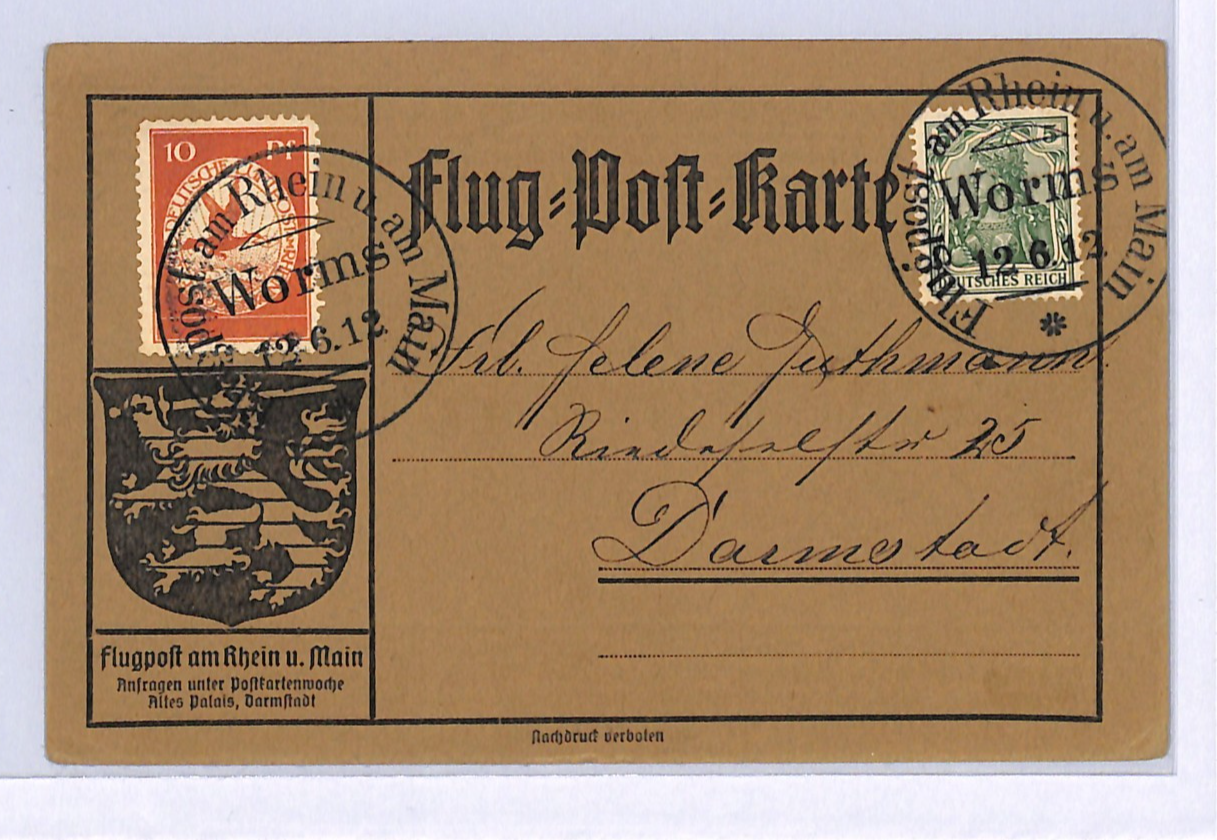 10 Pf
Flugpost am Rhein u. am Main
Worms
12.6.12
Flug=Post=Karte
5
DEUTSCHES REICH
Flugpost am Rhein u. am Main
Worms
12.6.12
Frl. Helene Guthmann.
Riedeselstr 25
Darmstadt.
Flugpost am Rhein u. Main
Anfragen unter Postkartenwoche
Altes Palais, Darmstadt
Nachdruck verboten